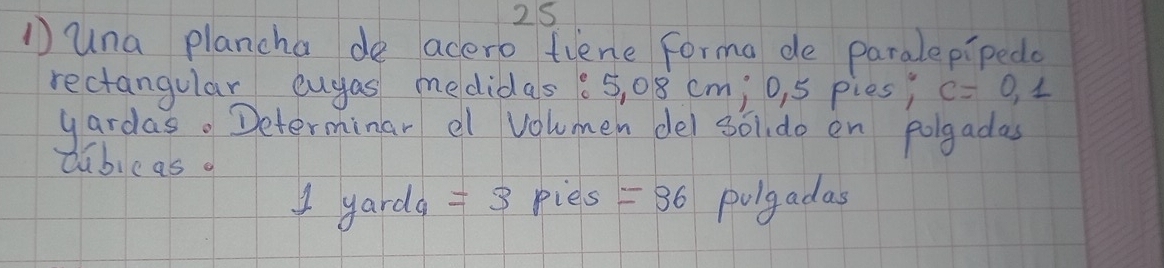 25
1) Una plancha de acero tiene forma de paralepípedo
rectangular cuyas medidas : 5,08 cm ; 0,5 pies ; c = 0,1
yardas . Determinar el volumen del sólido en polgadas
cúbicas .
1 yarda = 3 pies = 36 pulgadas